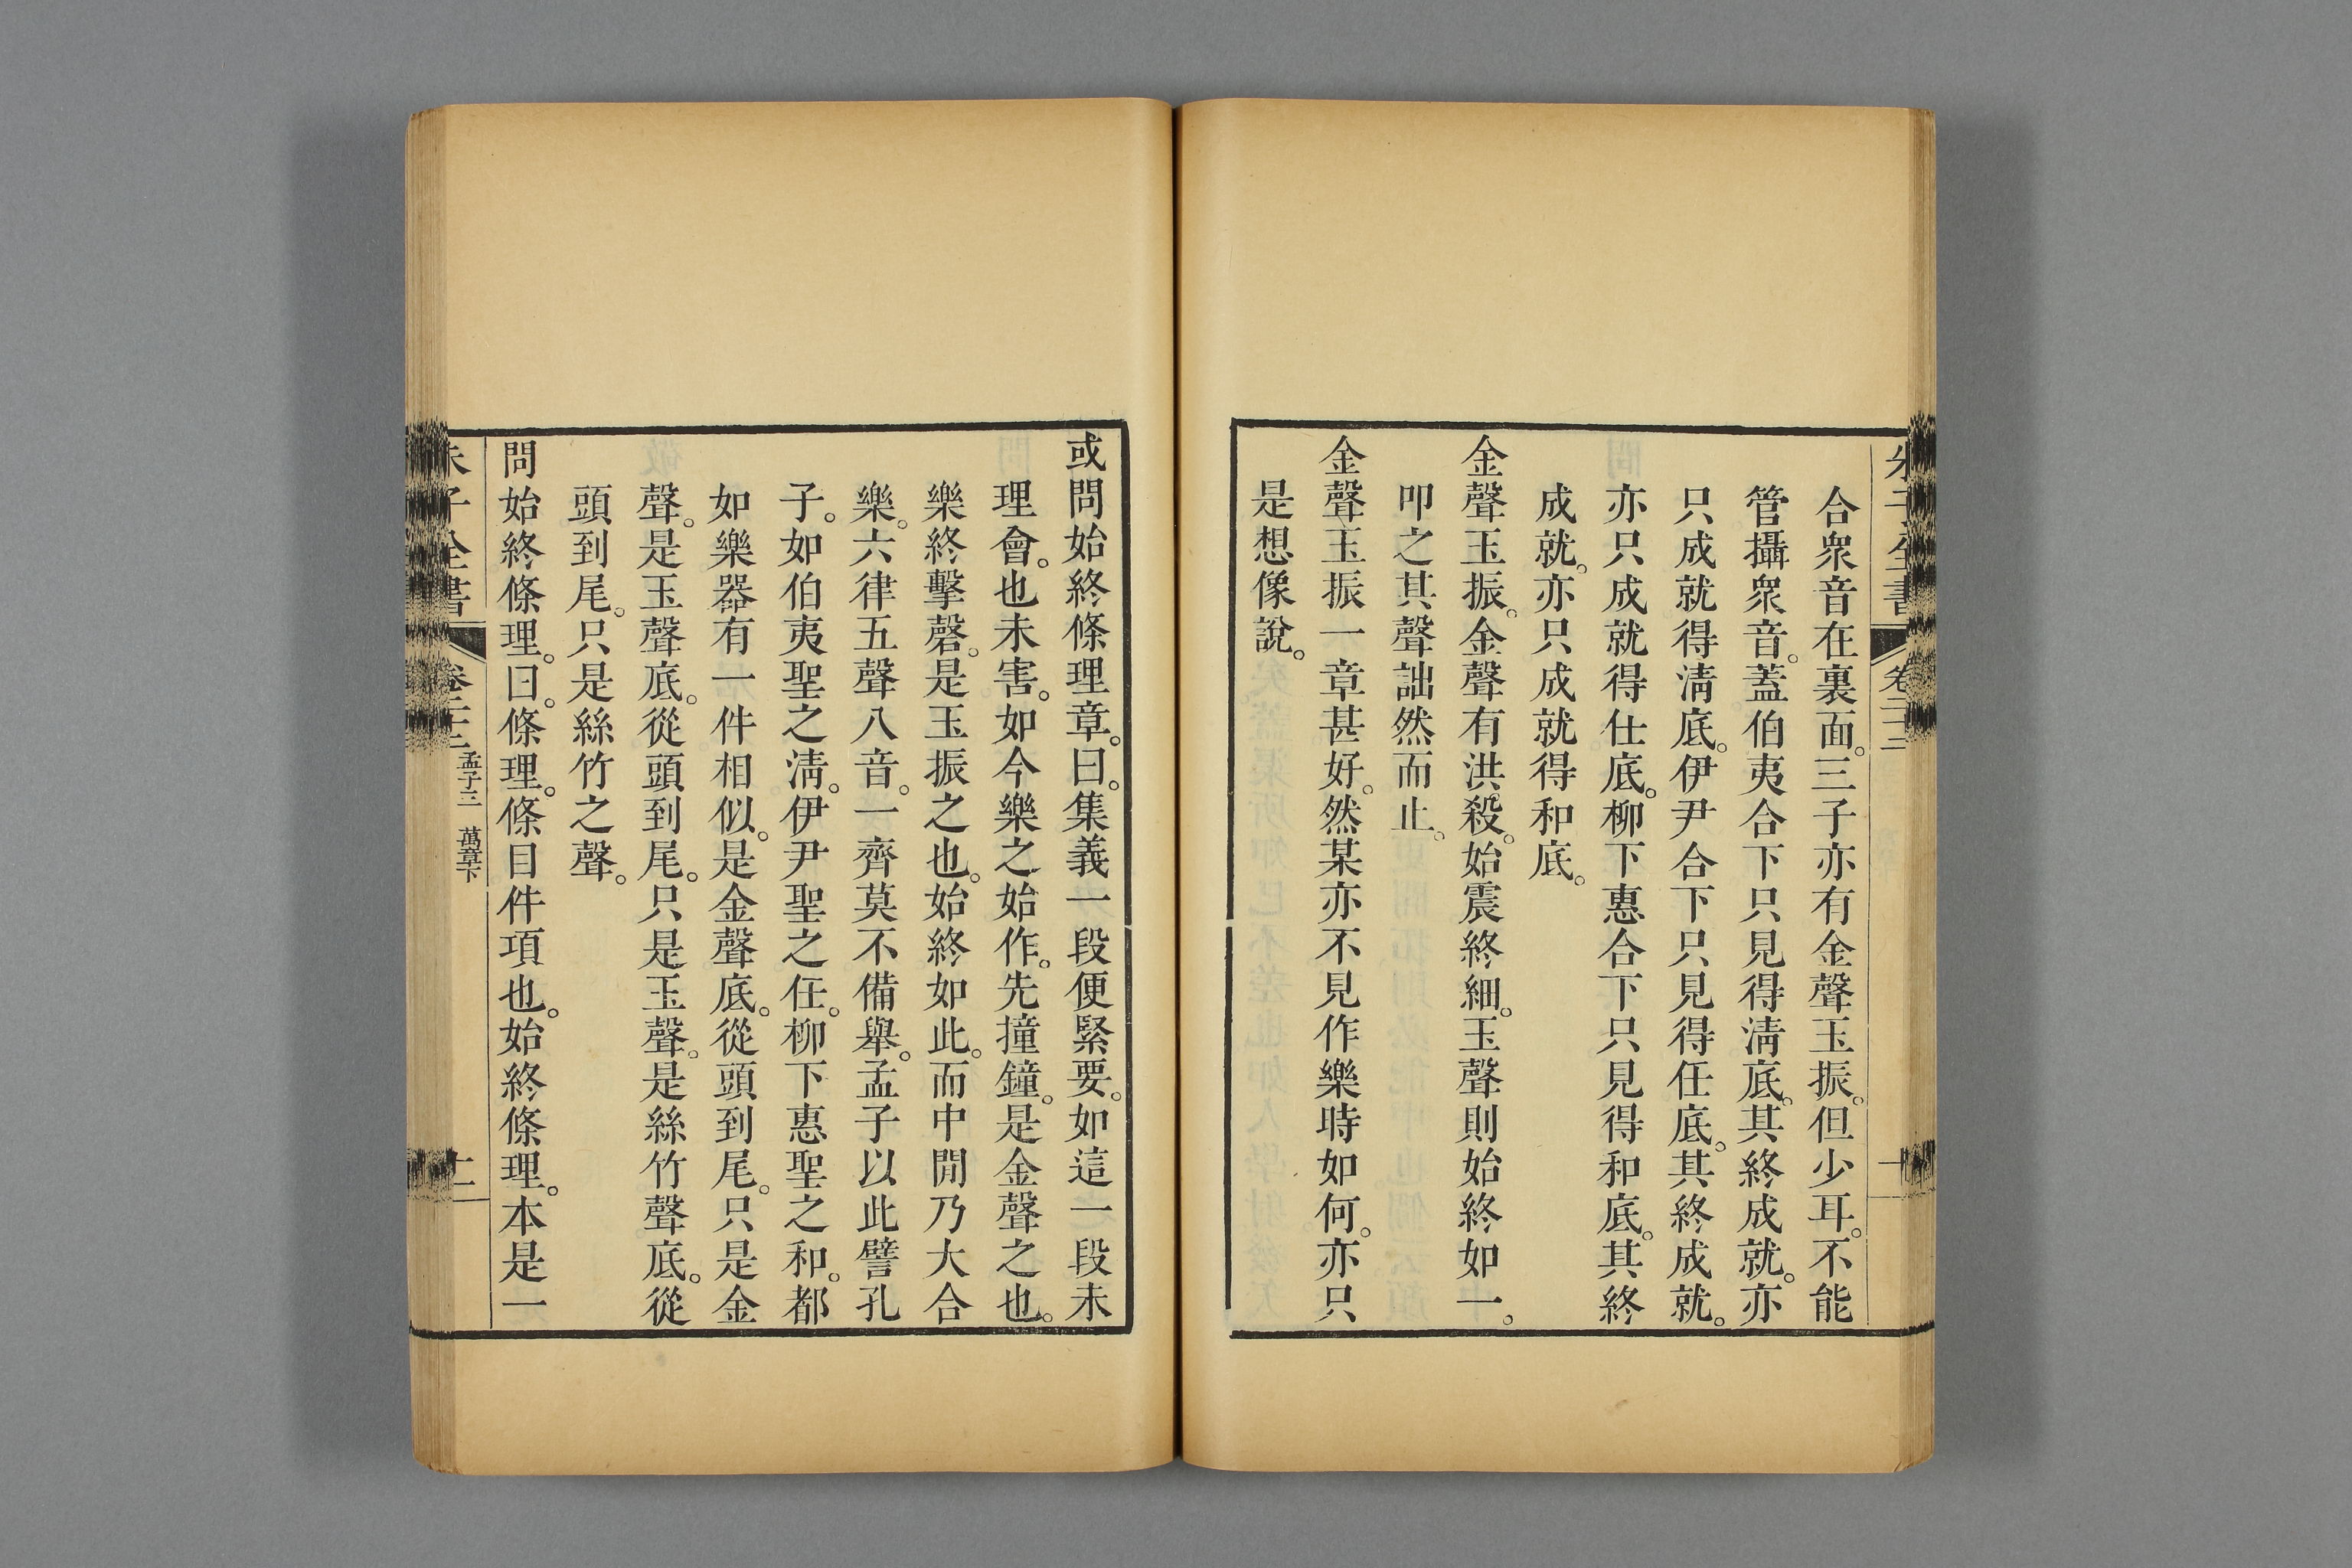 朱子全書 卷二十三
合衆音在裏面。三子亦有金聲玉振。但少耳。不能
管攝衆音。蓋伯夷合下只見得淸底。其終成就。亦
只成就得淸底。伊尹合下只見得任底。其終成就。
亦只成就得仕底。柳下惠合下只見得和底。其終
成就。亦只成就得和底。
金聲玉振。金聲有洪殺。始震終細。玉聲則始終如一。
叩之其聲詘然而止。
金聲玉振一章甚好。然某亦不見作樂時如何。亦只
是想像說。
或問始終條理章。曰。集義一段便緊要。如這一段未
理會。也未害。如今樂之始作。先撞鐘。是金聲之也。
樂終擊磬。是玉振之也。始終如此。而中閒乃大合
樂。六律五聲八音。一齊莫不備舉。孟子以此譬孔
子。如伯夷聖之淸。伊尹聖之任。柳下惠聖之和。都
如樂器有一件相似。是金聲底。從頭到尾。只是金
聲。是玉聲底。從頭到尾。只是玉聲。是絲竹聲底。從
頭到尾。只是絲竹之聲。
問始終條理。曰。條理。條目件項也。始終條理。本是一
朱子全書 孟子三 萬章下